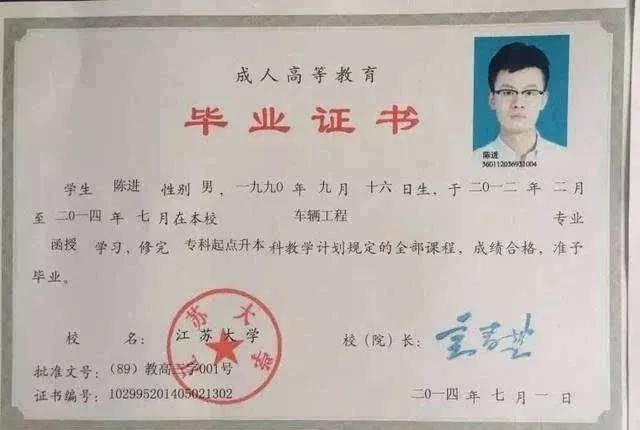 成人高等教育
毕业证书
陈进
360112036931004
学生 陈进 性别 男，一九九〇年 九月 十六 日生，于二〇一二年 二月
至二〇一四年 七月在本校 车辆工程 专业
函授 学习，修完 专科起点升本 科教学计划规定的全部课程，成绩合格，准予
毕业。
校 名：江苏大学 校（院）长：
江苏大学
批准文号：（89）教高三字001号
证书编号：102995201405021302
二〇一四年 七月 一日